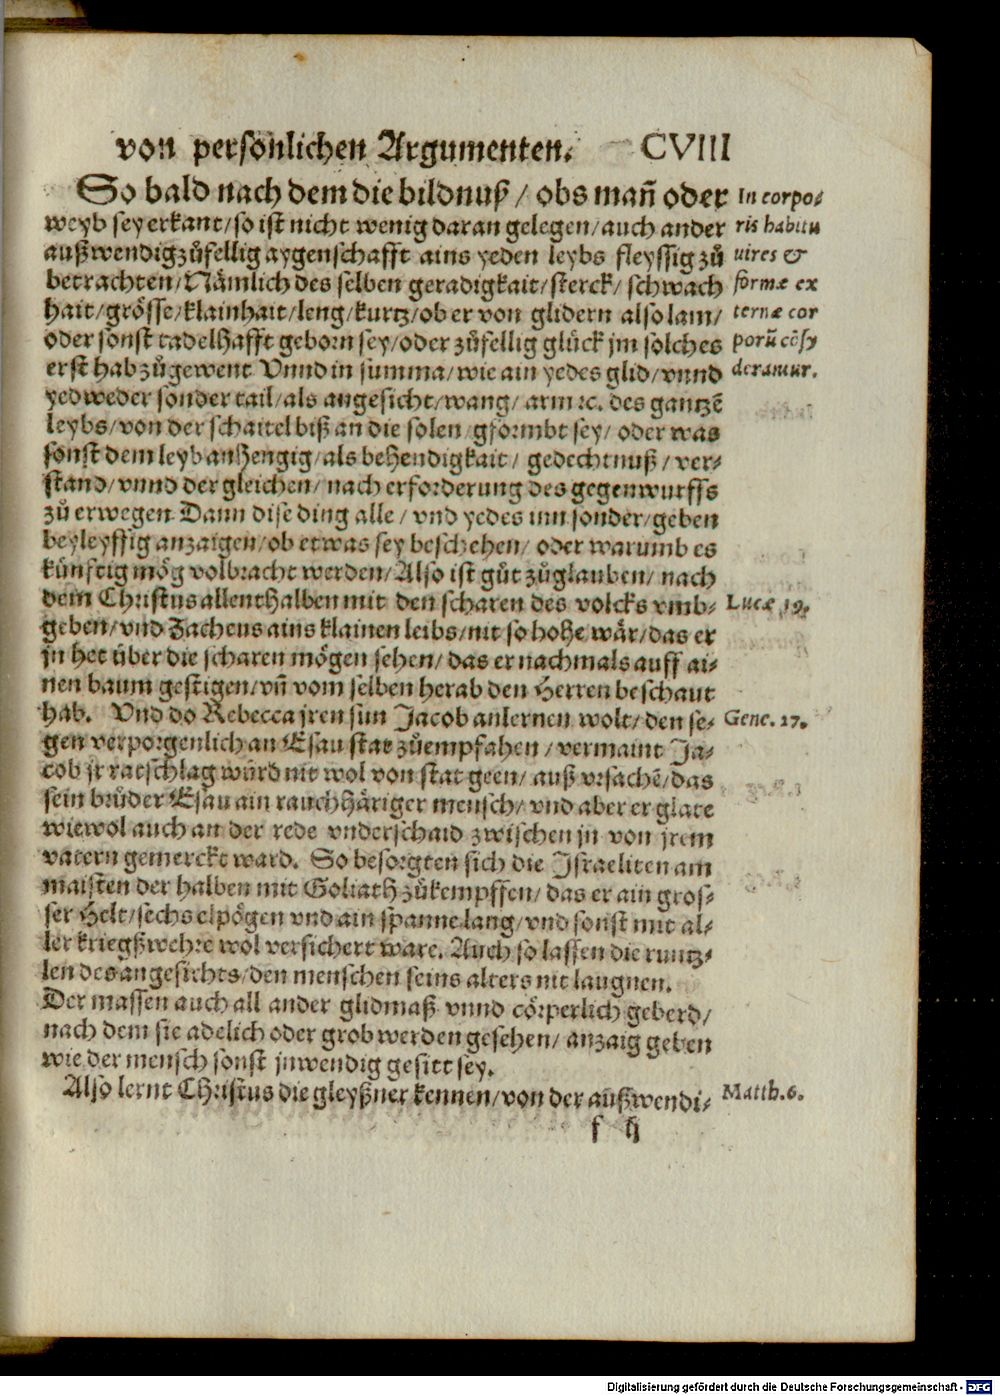 von persönlichen Argumenten. CVIII
So bald nach dem die bildnuß / obs mañ oder
weyb sey erkant/so ist nicht wenig daran gelegen/auch ander
außwendig zůfellig aygenschafft ains yeden leybs fleyssig zů
betrachten/Nämlich des selben geradigkait/sterck/schwach
hait/grösse/klainhait/leng/kurtz/ob er von glidern also lam/
oder sonst tadelhafft geborn sey/oder zůfellig glück jm solches
erst hab zůgewent Vnnd in summa/wie ain yedes glid/vnnd
yedweder sonder tail/als angesicht/wang/arm ꝛc. des gantzē
leybs/von der schaitel biß an die solen gformbt sey/oder was
sonst dem leyb anhengig/als behendigkait/ gedechtnuß/ver-
stand/vnnd der gleichen/nach erforderung des gegenwurffs
zů erwegen Dann dise ding alle/vnd yedes inn sonder/geben
beyleyffig anzaigen/ob etwas sey beschehen/oder warumb es
künftig mög volbracht werden/Also ist gůt zůglauben/nach
dem Christus allenthalben mit den scharen des volcks vmb-
geben/vnd Zacheus ains klainen leibs/nit so hohe wär/das er
jn het über die scharen mögen sehen/das er nachmals auff ai-
nen baum gestigen/vñ vom selben herab den Herren beschaut
hab. Vnd do Rebecca jren sun Jacob anlernen wolt/den se-
gen verporgenlich an Esau stat zůempfahen/vermaint Ja-
cob jr ratschlag würd nit wol von stat geen/auß vrsachē/das
sein brůder Esau ain rauch häriger mensch/vnd aber er glate
wiewol auch an der rede vnderschaid zwischen jn von jrem
vatern gemerckt ward. So besorgten sich die Israeliten am
maisten der halben mit Goliath zůkempffen/das er ain gros-
ser Helt/sechs elpögen vnd ain spanne lang/vnd sonst mit al-
ler kriegßwehre wol versichert ware. Auch so lassen die runtz-
len des angesichts/den menschen seins alters nit laugnen.
Der massen auch all ander glidmaß vnnd cörperlich geberd/
nach dem sie adelich oder grob werden gesehen/anzaig geben
wie der mensch sonst jnwendig gesitt sey.
Also lernt Christus die gleyßner kennen/von der außwendi-
f ij
In corpo-
ris habitu
uires &
formæ ex
ternæ cor
porū cōsy
derantur.
Lucæ 19.
Gene. 27.
Matth. 6.
Digitalisierung gefördert durch die Deutsche Forschungsgemeinschaft - DFG